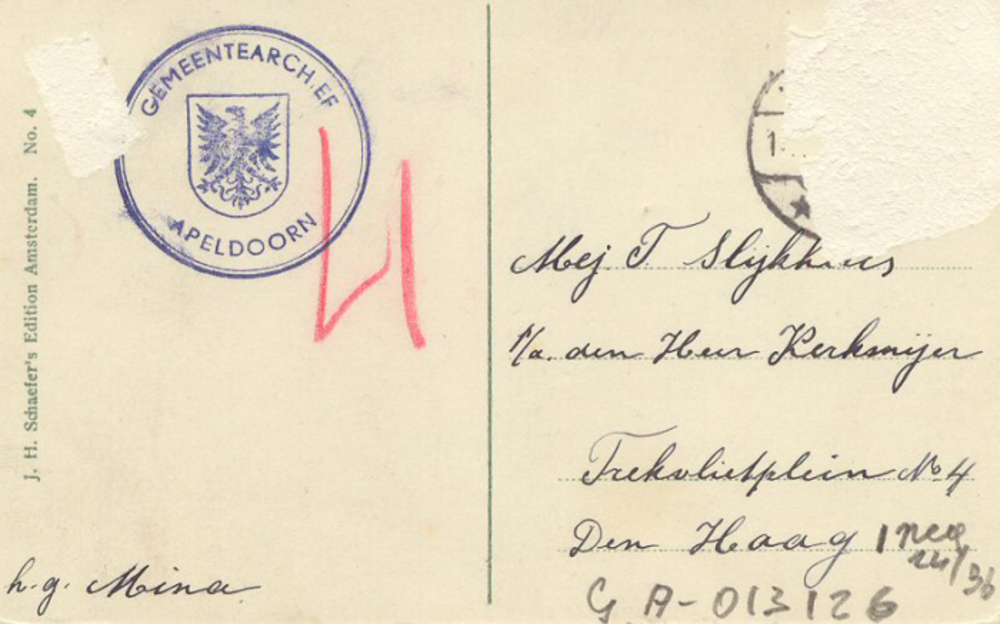 J. H. Schaefer's Edition Amsterdam. No. 4
GEMEENTEARCHIEF
APELDOORN
h.g. Mina
Mej. T Slijkhuis
P/a. den Heer Kerkmeijer
Trekvlietplein No 4
Den Haag
1 neg
24/36
GA-013126